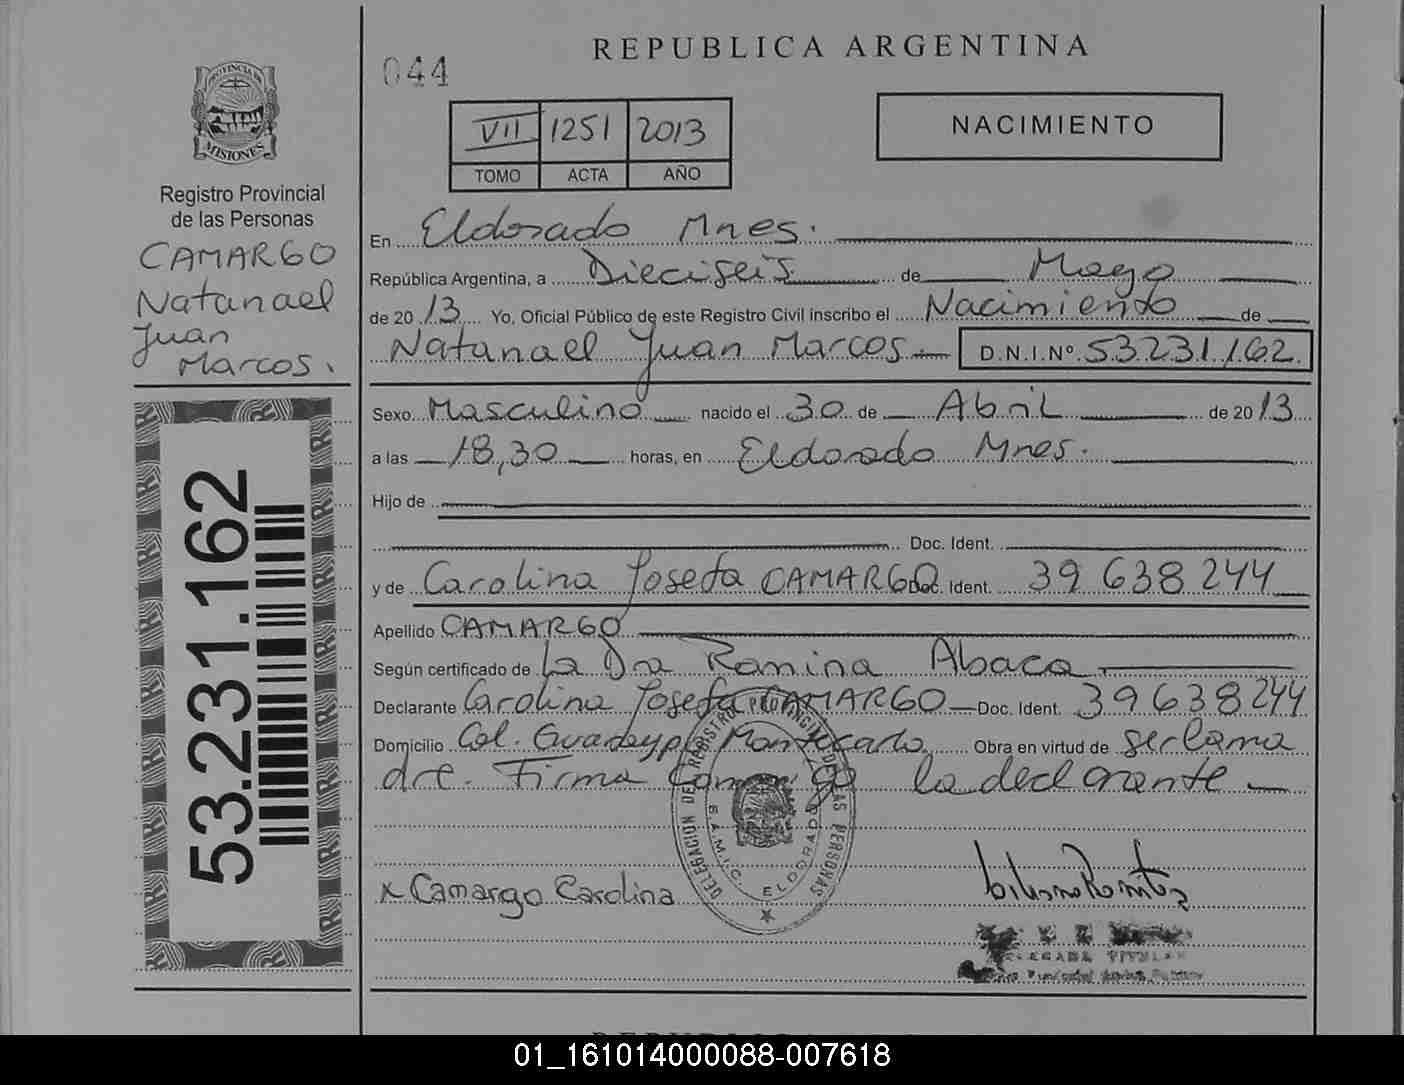 044
REPUBLICA ARGENTINA
VII 1251 2013
TOMO ACTA AÑO
NACIMIENTO
PROVINCIA DE
MISIONES
Registro Provincial
de las Personas
CAMARGO
Natanael
Juan
Marcos.
53.231.162
En Eldorado Mnes.
República Argentina, a Dieciseis de Mayo
de 2013 Yo, Oficial Público de este Registro Civil inscribo el Nacimiento de
Natanael Juan Marcos D.N.I.Nº 53231162
Sexo Masculino nacido el 30 de Abril de 2013
a las 18,30 horas, en Eldorado Mnes.
Hijo de
Doc. Ident.
y de Carolina Josefa CAMARGO Doc. Ident. 39 638 244
Apellido CAMARGO
Según certificado de La Dra Romina Abaca
Declarante Carolina Josefa CAMARGO Doc. Ident. 39638244
Domicilio Col. Guaraypo Montecarlo Obra en virtud de ser la ma
dre. Firma conmigo la declarante
DELEGACIÓN DEL REGISTRO PROVINCIAL DE LAS PERSONAS
S.A.M.I.C. ELDORADO
x Camargo Carolina
DELEGADA TITULAR
01_161014000088-007618